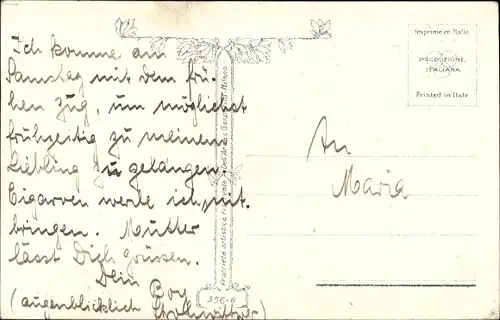 Ich komme am
Samstag mit dem frü-
hen Zug, um möglichst
frühzeitig zu meinem
Liebling zu gelangen.
Cigarren werde ich mit-
bringen. Mutter
lässt Dich grüssen.
Dein
Boy
(augenblicklich Strohwitwer)
Proprietà artistica riservata
Dell'Anna & Gasparini Milano
356-6
Imprimé en Italie
PRODUZIONE
ITALIANA
Printed in Italy
An
Maria